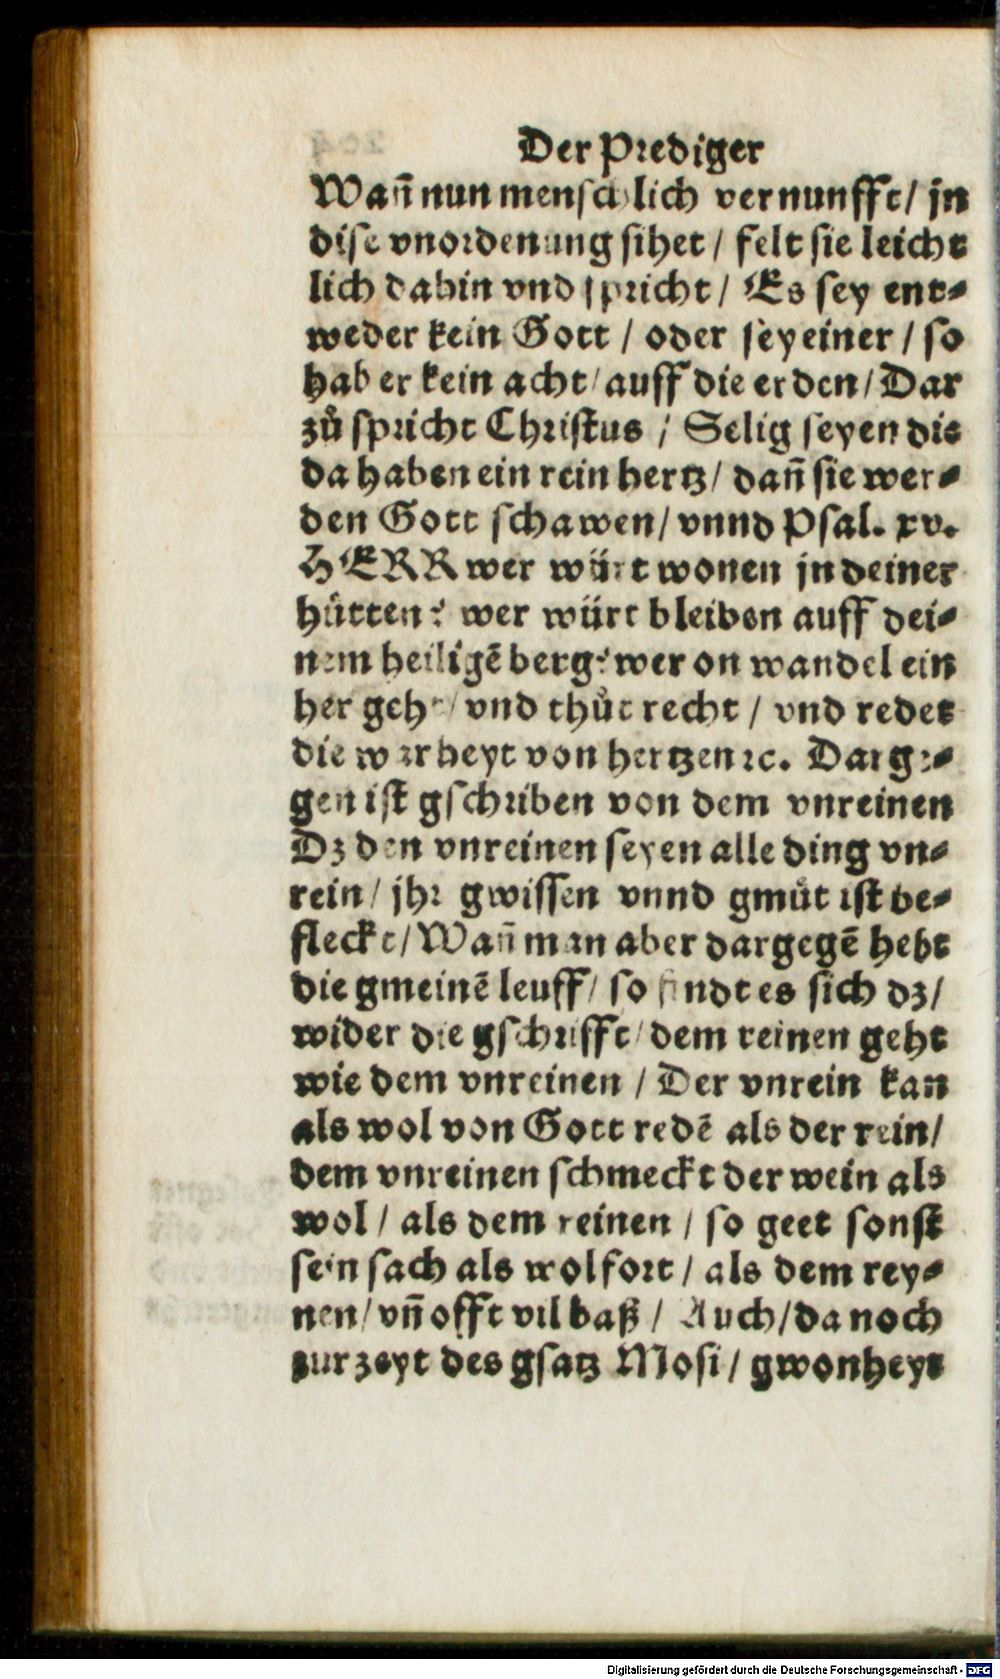 Der Prediger
Wañ nun menschlich vernunfft / jn
dise vnordenung sihet / felt sie leicht
lich dahin vnd spricht / Es sey ent⸗
weder kein Gott / oder sey einer / so
hab er kein acht / auff die erden / Dar
zů spricht Christus / Selig seyen die
da haben ein rein hertz / dañ sie wer⸗
den Gott schawen / vnnd Psal. xv.
HERR wer würt wonen jn deiner
hütten? wer würt bleiben auff dei⸗
nem heiligē berg? wer on wandel ein
her geht / vnd thůt recht / vnd redet
die warheyt von hertzen ꝛc. Darge⸗
gen ist gschriben von dem vnreinen
Dz den vnreinen seyen alle ding vn⸗
rein / jhr gwissen vnnd gmůt ist be⸗
fleckt / Wañ man aber dargegē hebt
die gmeinē leuff / so findt es sich dz /
wider die gschrifft / dem reinen geht
wie dem vnreinen / Der vnrein kan
als wol von Gott redē als der rein /
dem vnreinen schmeckt der wein als
wol / als dem reinen / so geet sonst
sein sach als wol fort / als dem rey⸗
nen / vñ offt vil baß / Auch / da noch
zur zeyt des gsatz Mosi / gwonheyt
Digitalisierung gefördert durch die Deutsche Forschungsgemeinschaft - DFG